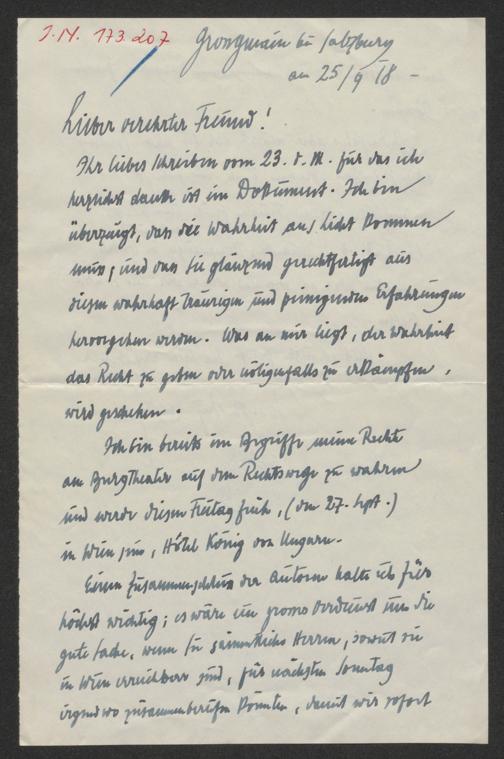 J.N. 173.207
Grossgmain bei Salzburg
am 25/9 18 –
Lieber verehrter Freund!
Ihr liebes Schreiben vom 23. d. M. für das ich
herzlichst danke ist ein Dokument. Ich bin
überzeugt, dass die Wahrheit ans Licht kommen
muss, und dass Sie glänzend gerechtfertigt aus
diesen wahrhaft traurigen und peinigenden Erfahrungen
hervorgehen werden. Was an mir liegt, der Wahrheit
das Recht zu geben oder nötigenfalls zu erkämpfen,
wird geschehen.
Ich bin bereits im Begriffe meine Rechte
am Burgtheater auf dem Rechtswege zu wahren
und werde diesen Freitag früh, (den 27. Sept.)
in Wien sein, Hôtel König von Ungarn.
Einen Zusammenschluss der Autoren halte ich für
höchst wichtig; es wäre ein grosses Verdienst um die
gute Sache, wenn Sie sämmtliche Herren, soweit sie
in Wien erreichbar sind, für nächsten Sonntag
irgendwo zusammenberufen könnten, damit wir sofort